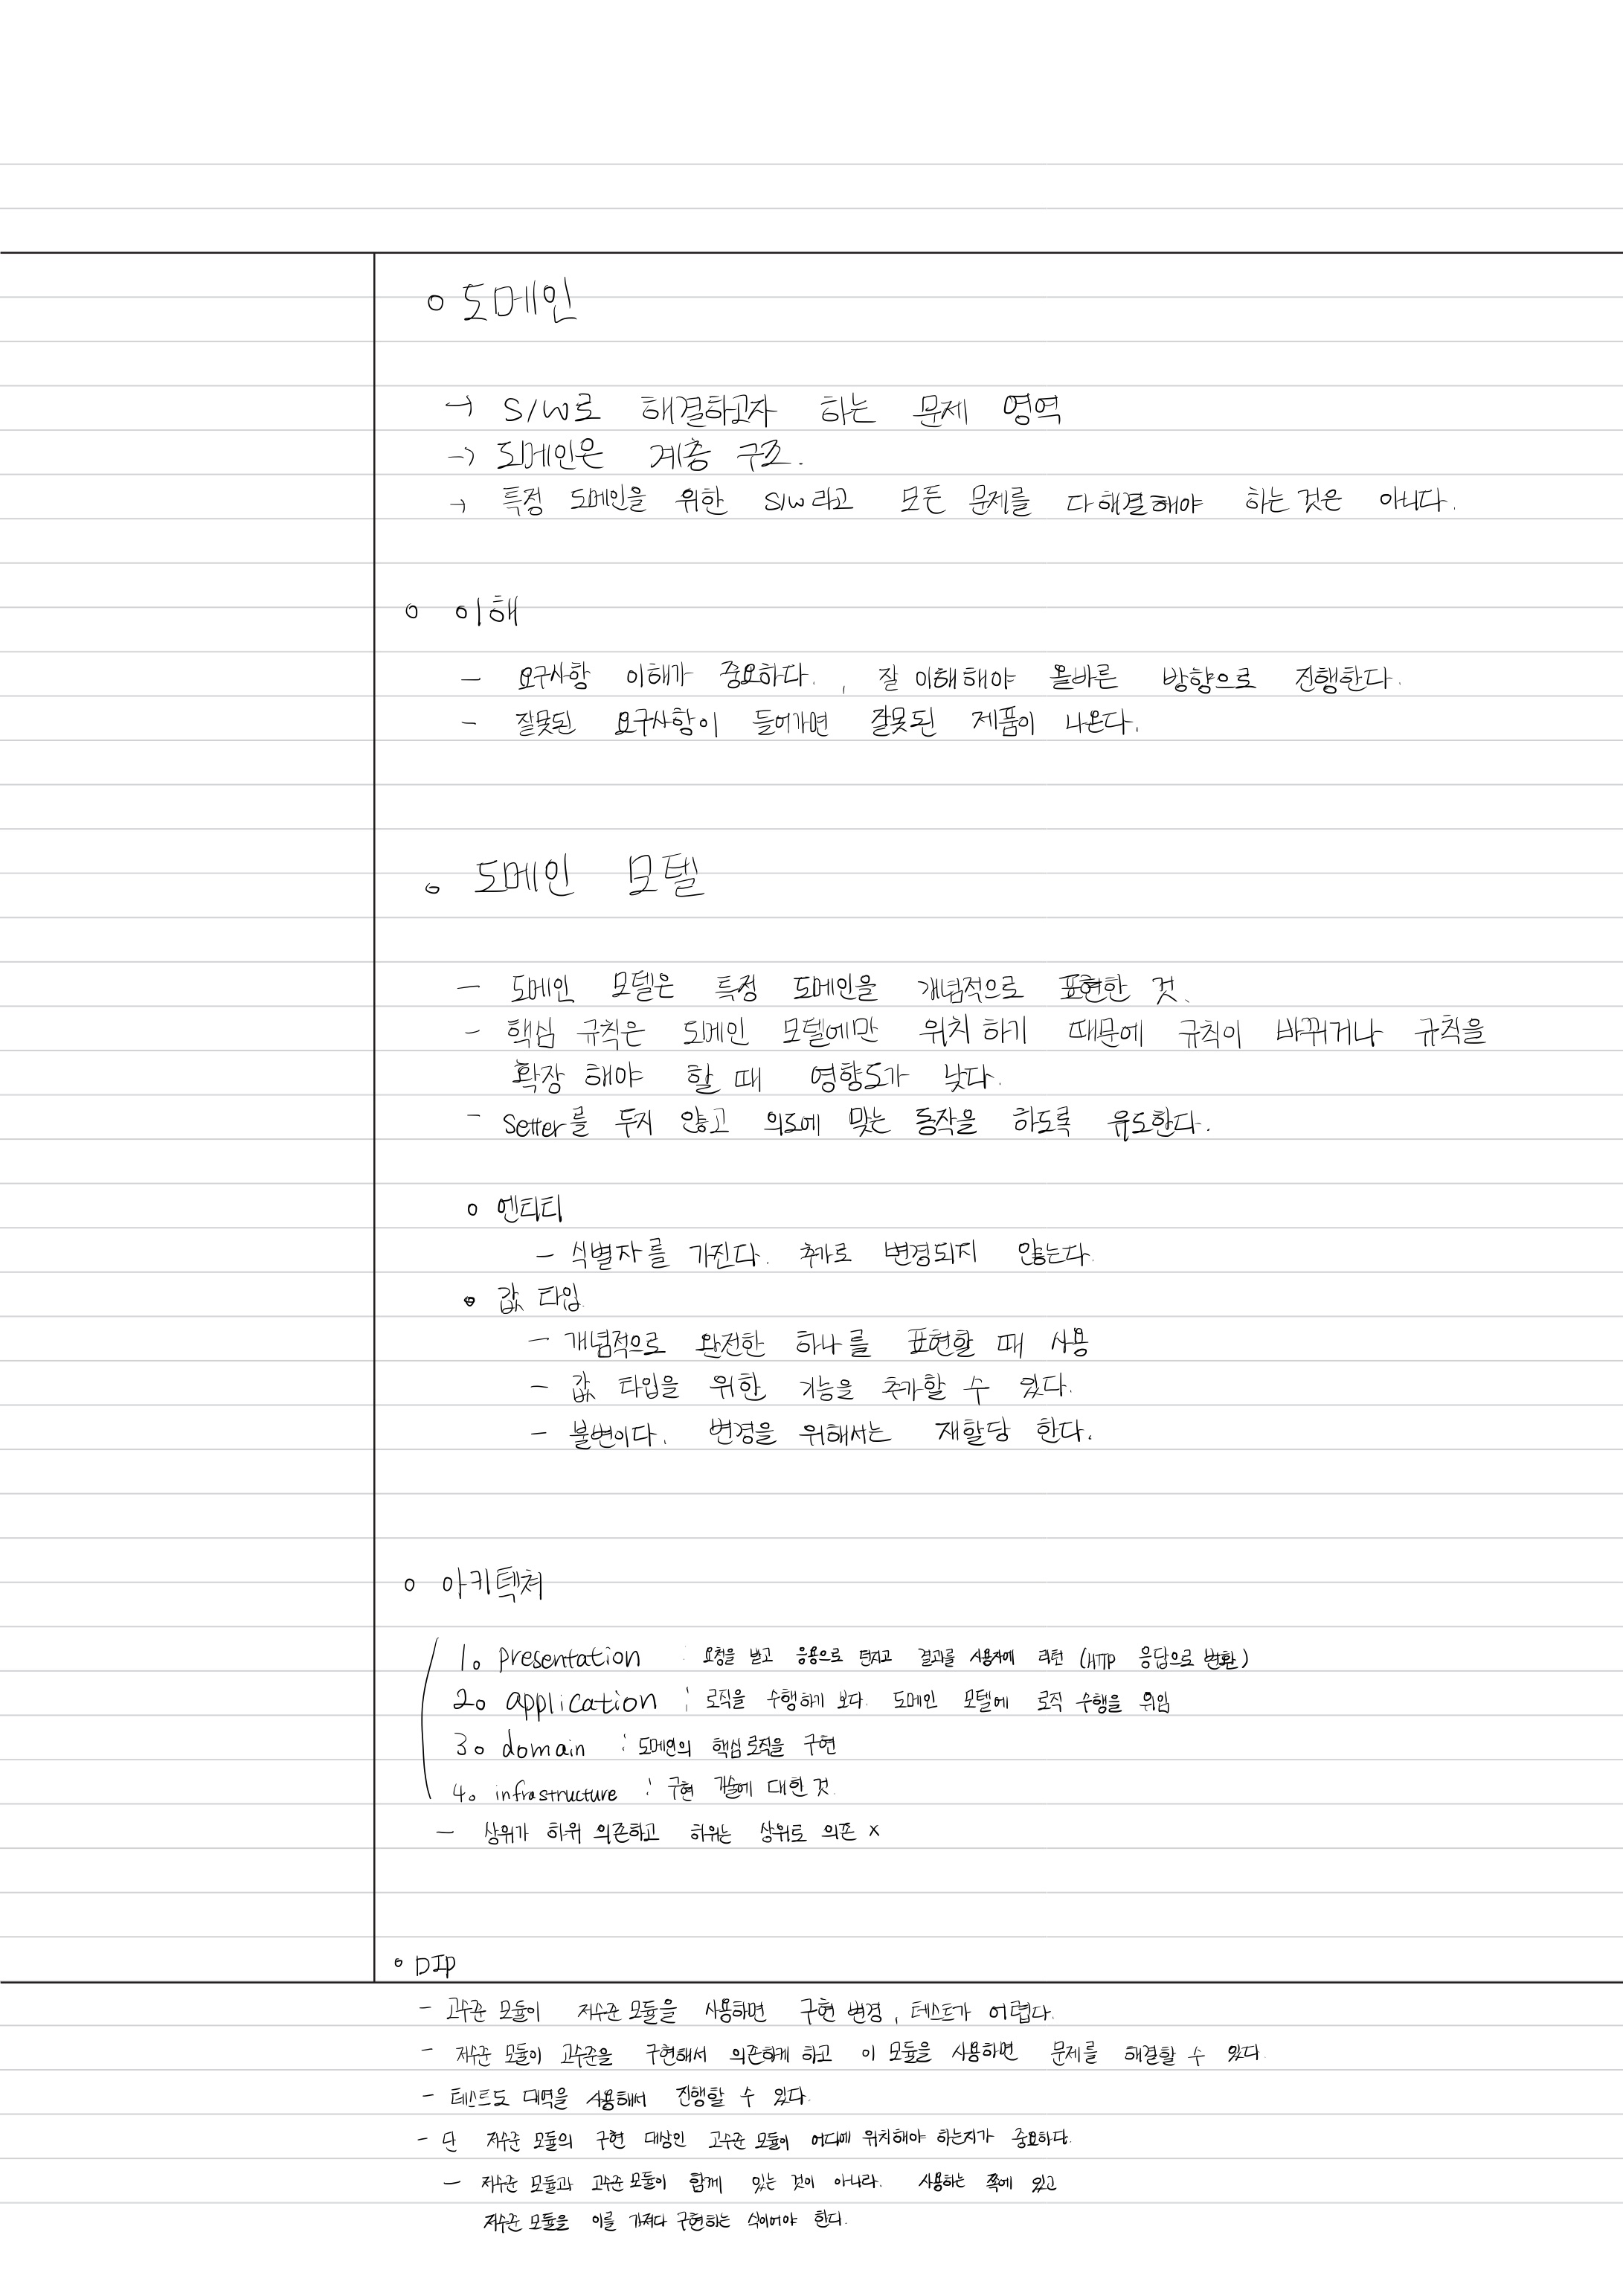 ○ 도메인
→ S/W로 해결하고자 하는 문제 영역
→ 도메인은 계층 구조.
→ 특정 도메인을 위한 S/W라고 모든 문제를 다 해결해야 하는 것은 아니다.
○ 이해
- 요구사항 이해가 중요하다. , 잘 이해해야 올바른 방향으로 진행한다.
- 잘못된 요구사항이 들어가면 잘못된 제품이 나온다.
○ 도메인 모델
- 도메인 모델은 특정 도메인을 개념적으로 표현한 것.
- 핵심 규칙은 도메인 모델에만 위치 하기 때문에 규칙이 바뀌거나 규칙을
확장 해야 할 때 영향도가 낮다.
- Setter를 두지 않고 의도에 맞는 동작을 하도록 유도한다.
○ 엔티티
- 식별자를 가진다. 추가로 변경되지 않는다.
○ 값 타입
- 개념적으로 완전한 하나를 표현할 때 사용
- 값 타입을 위한 기능을 추가할 수 있다.
- 불변이다. 변경을 위해서는 재할당 한다.
○ 아키텍쳐
1. presentation : 요청을 받고 응용으로 던지고 결과를 사용자에 리턴 (HTTP 응답으로 변환)
2. application : 로직을 수행하기 보다. 도메인 모델에 로직 수행을 위임
3. domain : 도메인의 핵심 로직을 구현
4. infrastructure : 구현 기술에 대한 것.
- 상위가 하위 의존하고 하위는 상위로 의존 x
○ DIP
- 고수준 모듈이 저수준 모듈을 사용하면 구현 변경, 테스트가 어렵다.
- 저수준 모듈이 고수준을 구현해서 의존하게 하고 이 모듈을 사용하면 문제를 해결할 수 있다.
- 테스트도 대역을 사용해서 진행할 수 있다.
- 단 저수준 모듈의 구현 대상인 고수준 모듈이 어디에 위치해야 하는지가 중요하다.
- 저수준 모듈과 고수준 모듈이 함께 있는 것이 아니라. 사용하는 쪽에 있고
저수준 모듈을 이를 가져다 구현하는 식이어야 한다.